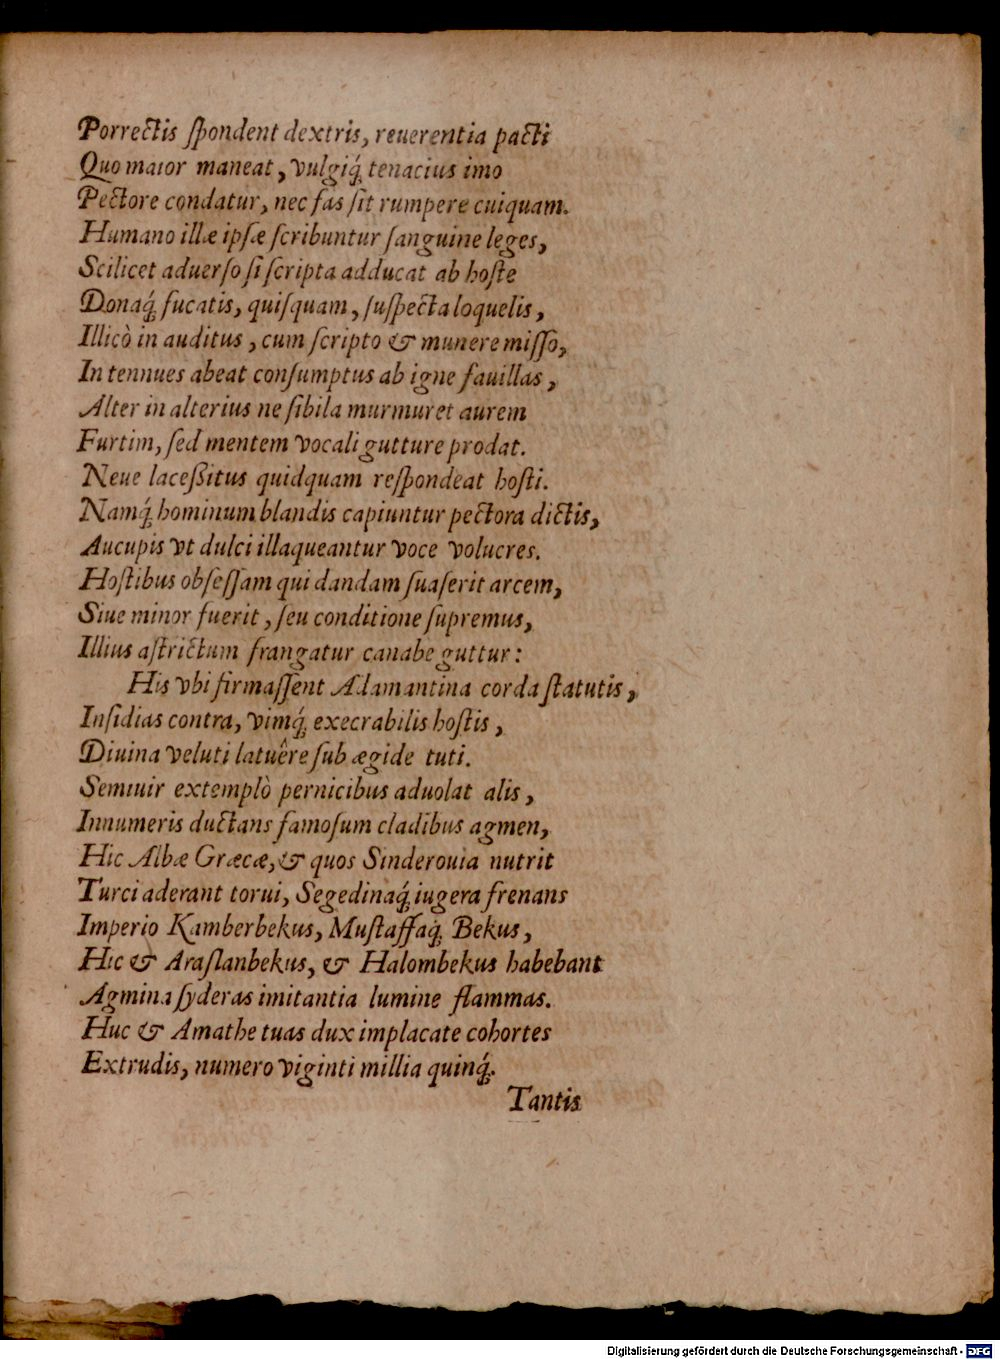 Porrectis ſpondent dextris, reuerentia pacti
Quo maior maneat, vulgiq́; tenacius imo
Pectore condatur, nec fas ſit rumpere cuiquam.
Humano illæ ipſæ ſcribuntur ſanguine leges,
Scilicet aduerſo ſi ſcripta adducat ab hoſte
Donaq́; fucatis, quiſquam, ſuſpecta loquelis,
Illicò in auditus, cum ſcripto & munere miſſo,
In tennues abeat conſumptus ab igne fauillas,
Alter in alterius ne ſibila murmuret aurem
Furtim, ſed mentem vocali gutture prodat.
Neue laceßitus quidquam reſpondeat hoſti.
Namq́; hominum blandis capiuntur pectora dictis,
Aucupis vt dulci illaqueantur voce volucres.
Hoſtibus obſeſſam qui dandam ſuaſerit arcem,
Siue minor fuerit, ſeu conditione ſupremus,
Illius aſtrictum frangatur canabe guttur:
His vbi firmaſſent Adamantina corda ſtatutis,
Inſidias contra, vimq́; execrabilis hoſtis,
Diuina veluti latuêre ſub ægide tuti.
Semiuir extemplò pernicibus aduolat alis,
Innumeris ductans famoſum cladibus agmen,
Hic Albæ Græcæ, & quos Sinderouia nutrit
Turci aderant torui, Segedinaq́; iugera frenans
Imperio Kamberbekus, Muſtaffaq́; Bekus,
Hic & Araſlanbekus, & Halombekus habebant
Agmina ſyderas imitantia lumine flammas.
Huc & Amathe tuas dux implacate cohortes
Extrudis, numero viginti millia quinq́;.
Tantis
Digitalisierung gefördert durch die Deutsche Forschungsgemeinschaft - DFG